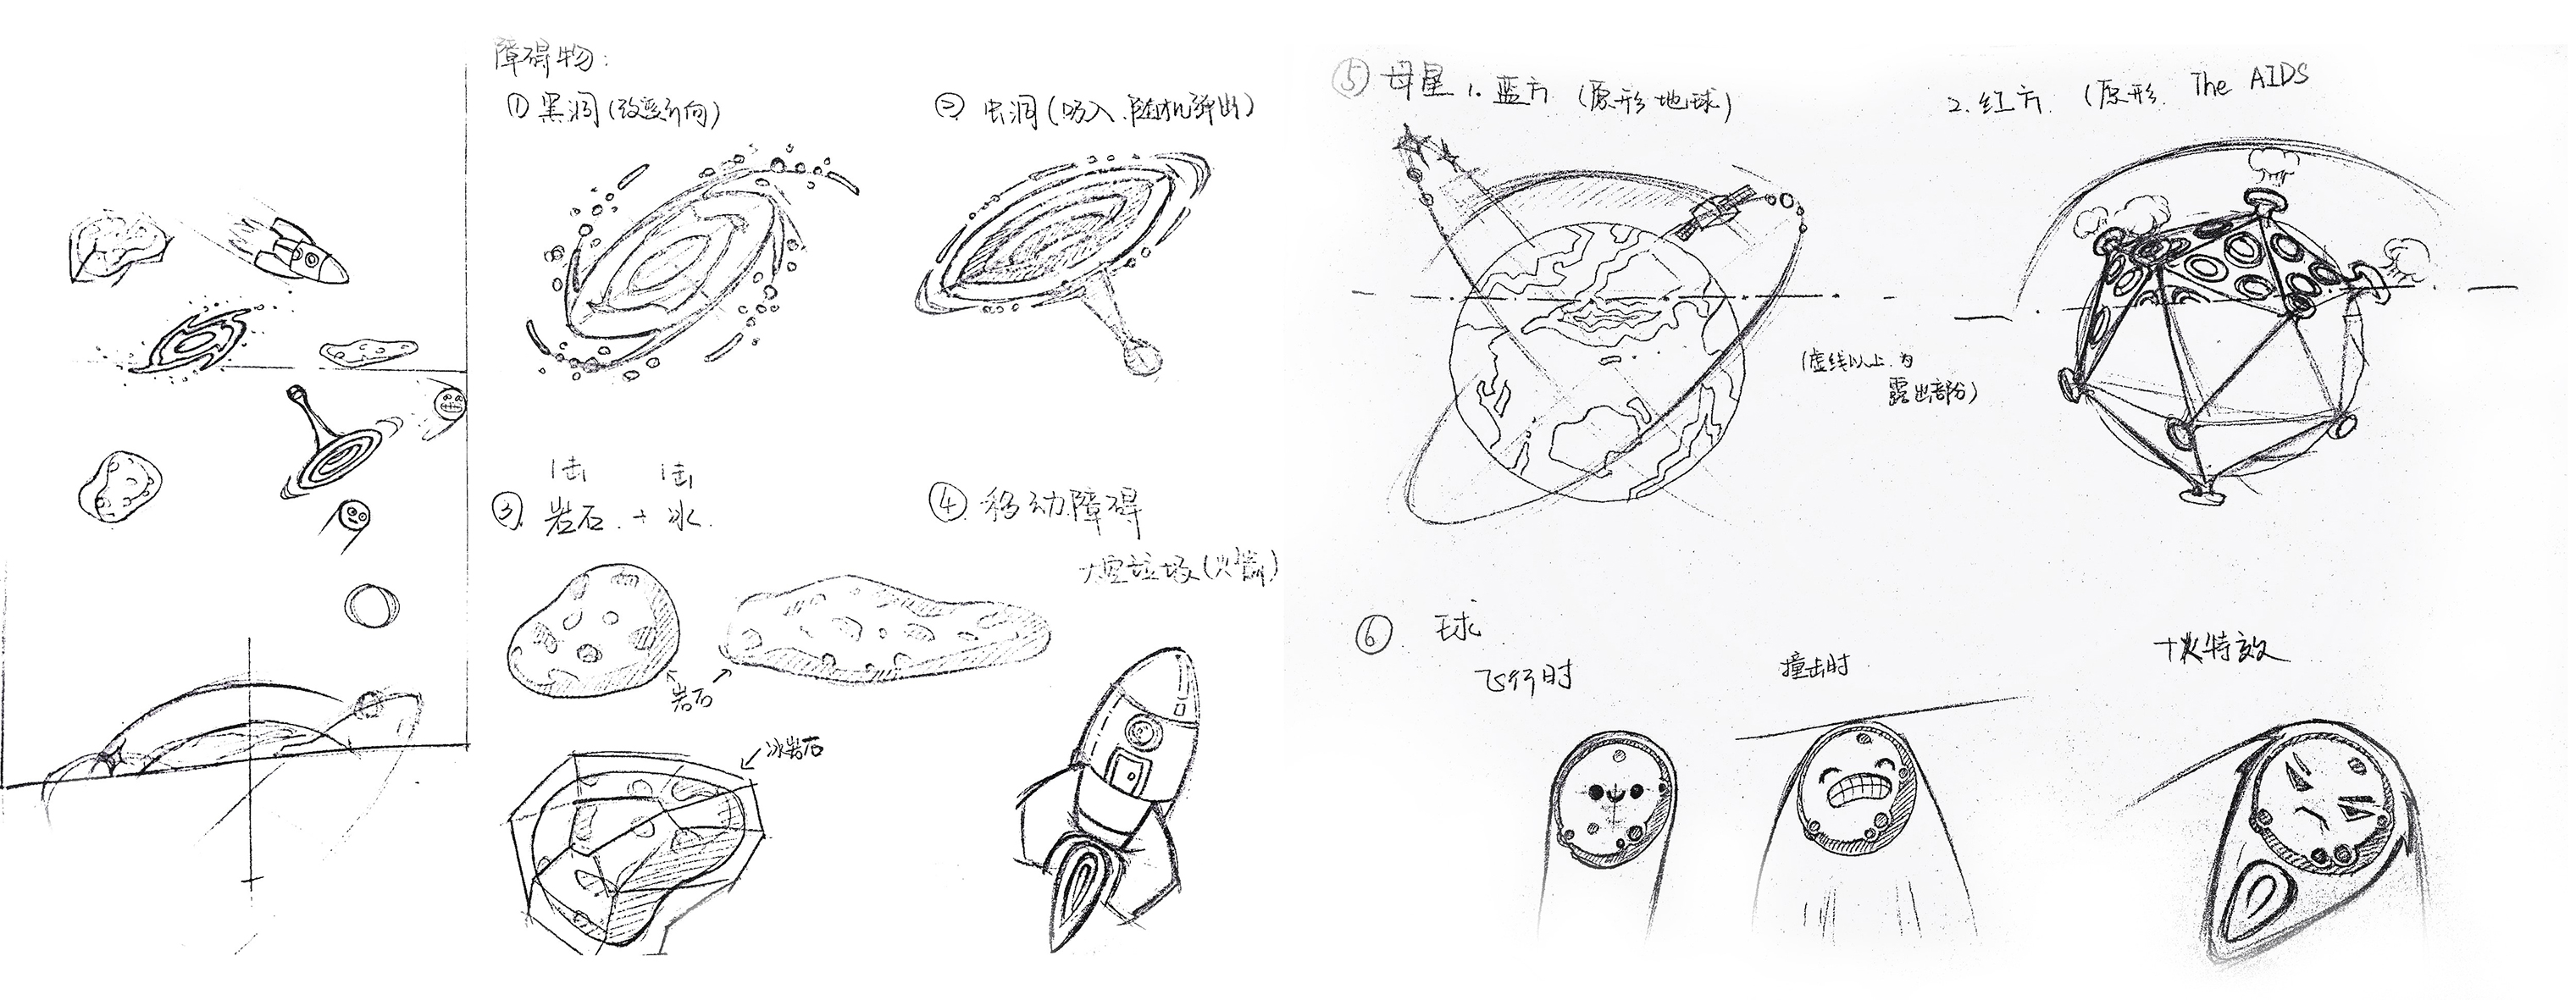 障碍物:
① 黑洞(改变方向)
② 虫洞(吸入.随机弹出)
1击 1击
③ 岩石.+ 冰.
④ 移动障碍
太空垃圾(火箭)
岩石
冰岩石
⑤ 母星 1. 蓝方 (原形地球)
2. 红方. (原形. The AIDS
(虚线以上.为
露出部分)
⑥ 球
飞行时
撞击时
特效